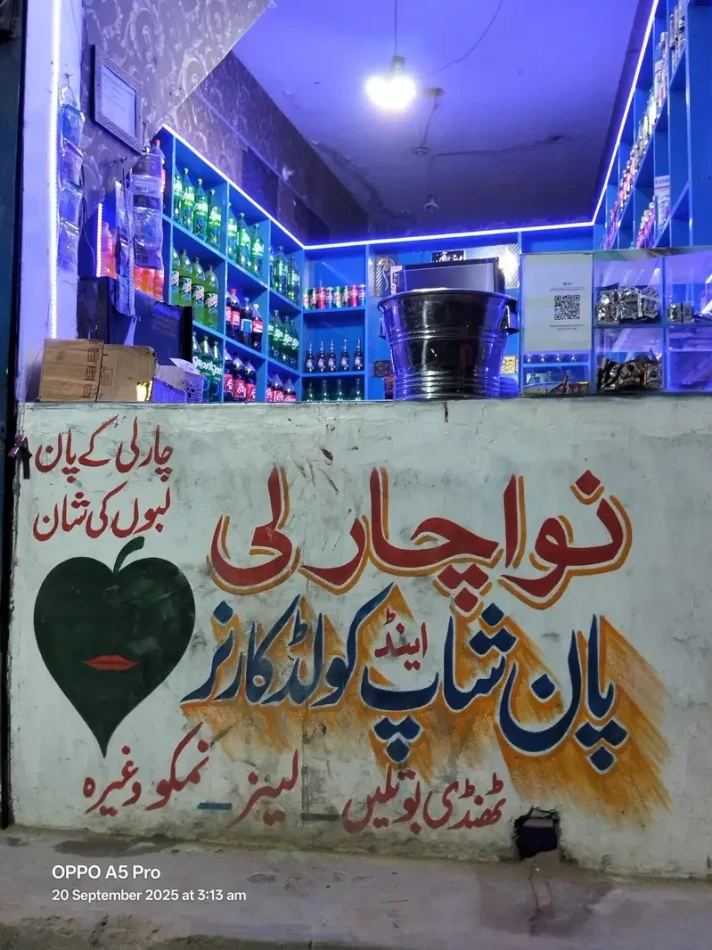 چارلی کے پان
لبوں کی شان
نواچارلی
پان شاپ اینڈ کولڈ کارنر
ٹھنڈی بوتلیں _ لیز _ نمکو وغیرہ
OPPO A5 Pro
20 September 2025 at 3:13 am